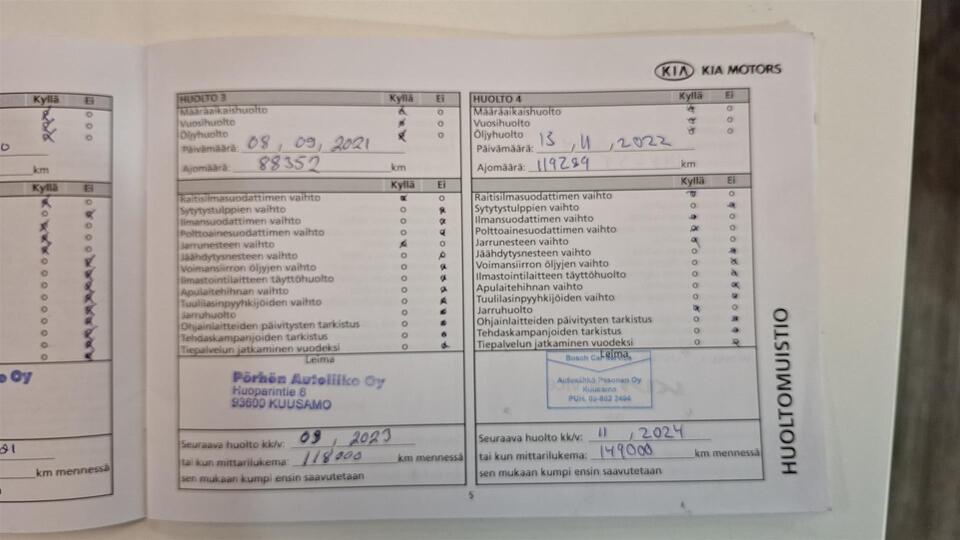 KIA KIA MOTORS
Kyllä Ei
km
Kyllä Ei
e Oy
km mennessä
HUOLTO 3 Kyllä Ei
Määräaikaishuolto
Vuosihuolto
Öljyhuolto
Päivämäärä: 08 , 09, 2021
Ajomäärä: 88352 km
Kyllä Ei
Raitisilmasuodattimen vaihto
Sytytystulppien vaihto
Ilmansuodattimen vaihto
Polttoainesuodattimen vaihto
Jarrunesteen vaihto
Jäähdytysnesteen vaihto
Voimansiirron öljyjen vaihto
Ilmastointilaitteen täyttöhuolto
Apulaitehihnan vaihto
Tuulilasinpyyhkijöiden vaihto
Jarruhuolto
Ohjainlaitteiden päivitysten tarkistus
Tehdaskampanjoiden tarkistus
Tiepalvelun jatkaminen vuodeksi
Leima
Pörhön Autoliike Oy
Huoparintie 6
93600 KUUSAMO
Seuraava huolto kk/v: 09 , 2023
tai kun mittarilukema: 118000 km mennessä
sen mukaan kumpi ensin saavutetaan
HUOLTO 4 Kyllä Ei
Määräaikaishuolto
Vuosihuolto
Öljyhuolto
Päivämäärä: 13 , 11 , 2022
Ajomäärä: 119289 km
Kyllä Ei
Raitisilmasuodattimen vaihto
Sytytystulppien vaihto
Ilmansuodattimen vaihto
Polttoainesuodattimen vaihto
Jarrunesteen vaihto
Jäähdytysnesteen vaihto
Voimansiirron öljyjen vaihto
Ilmastointilaitteen täyttöhuolto
Apulaitehihnan vaihto
Tuulilasinpyyhkijöiden vaihto
Jarruhuolto
Ohjainlaitteiden päivitysten tarkistus
Tehdaskampanjoiden tarkistus
Tiepalvelun jatkaminen vuodeksi
Leima
Bosch Car Service
Autosähkö Pesonen Oy
Kuusamo
Seuraava huolto kk/v: 11 , 2024
tai kun mittarilukema: 149000 km mennessä
sen mukaan kumpi ensin saavutetaan
5
HUOLTOMUISTIO